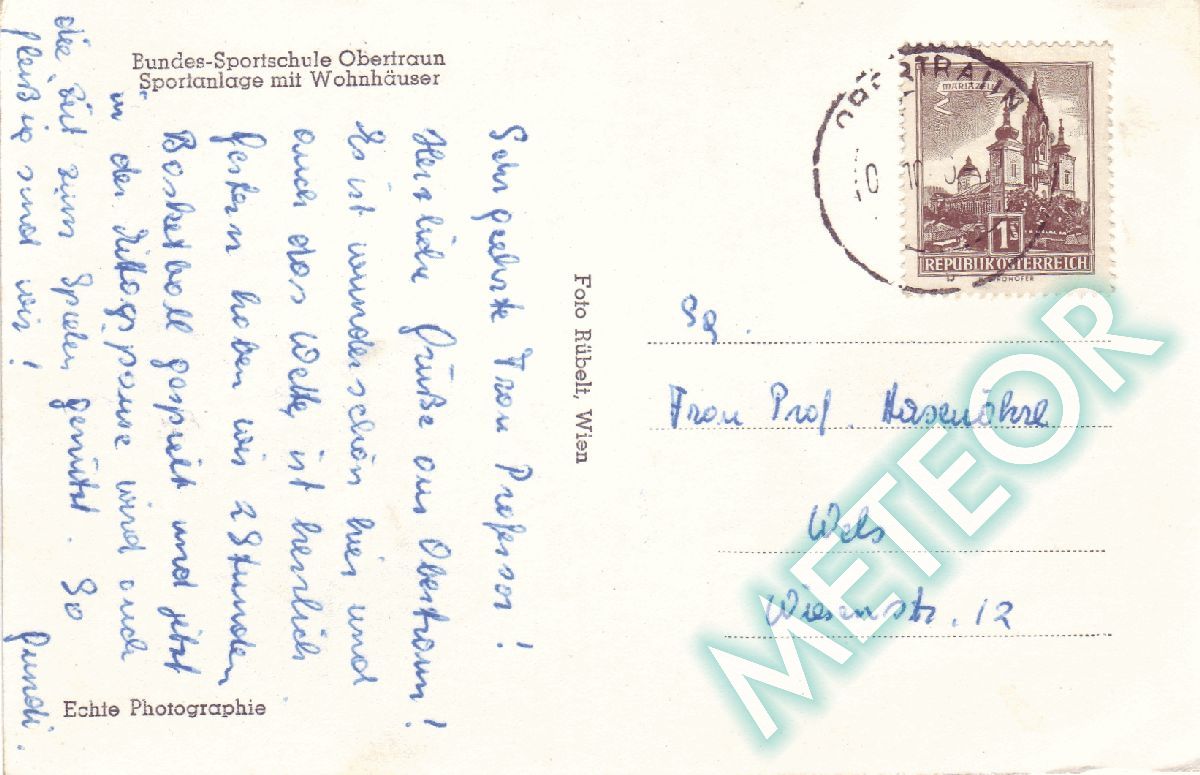 Bundes-Sportschule Obertraun
Sportanlage mit Wohnhäuser
Sehr geehrte Frau Professor!
Herzliche Grüße aus Obertraun!
Es ist wunderschön hier und
auch das Wetter ist herrlich
Gestern haben wir 2 Stunden
Basketball gespielt und jetzt
in der Mittagspause wird auch
die Zeit zum Spielen genützt. So
fleißig sind wir!
Gundi.
Echte Photographie
Foto Rübelt, Wien
OBERTRAUN
10
MARIAZELL
1S
REPUBLIK ÖSTERREICH
Sg.
Frau Prof. Hasenöhrl
Wels
Wiesenstr. 12
METEOR